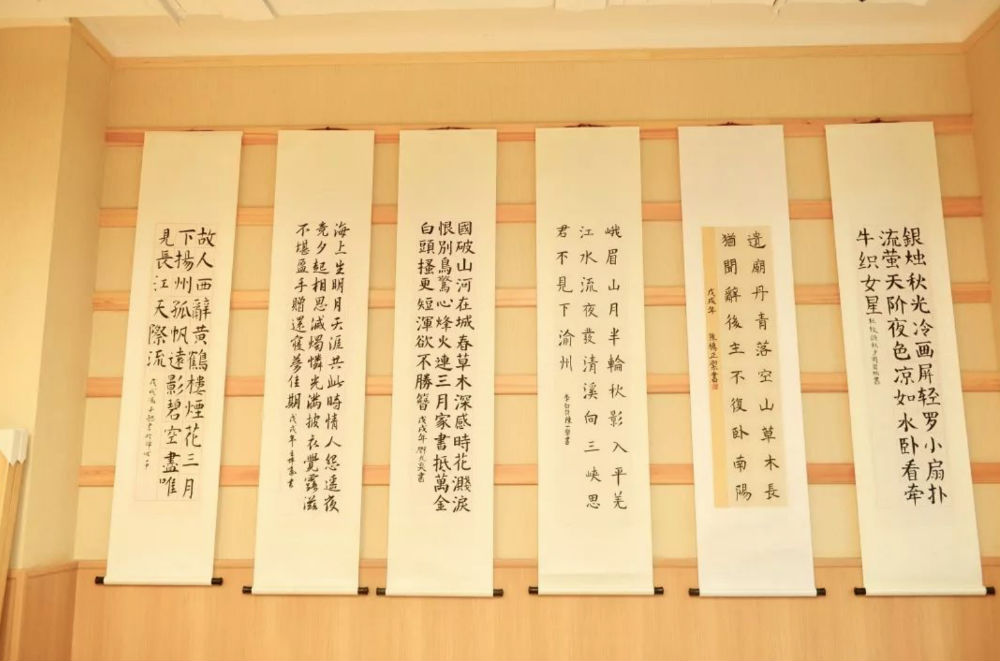 銀烛秋光冷画屏轻罗小扇扑
流萤天阶夜色凉如水卧看牵
牛织女星
遺廟丹青落空山草木長
猶聞辭後主不復卧南陽
戊戌年
峨眉山月半輪秋影入平羌
江水流夜發清溪向三峽思
君不見下渝州
國破山河在城春草木深感時花濺淚
恨別鳥驚心烽火連三月家書抵萬金
白頭搔更短渾欲不勝簪 戊戌年
海上生明月天涯共此時情人怨遥夜
竟夕起相思滅燭憐光滿披衣覺露滋
不堪盈手贈還寢夢佳期 戊戌年
故人西辭黄鶴樓煙花三月
下揚州孤帆遠影碧空盡唯
見長江天際流